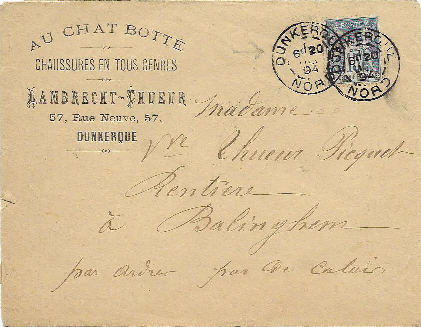 AU CHAT BOTTÉ
CHAUSSURES EN TOUS GENRES
LAMBRECHT-THUEUR
57, Rue Neuve, 57,
DUNKERQUE
DUNKERQUE
6E 20
94
NORD
DUNKERQUE
6E 20
94
NORD
Madame
Vve Thueur Picquet
Rentière
à Balinghem
par Ardres pas de Calais